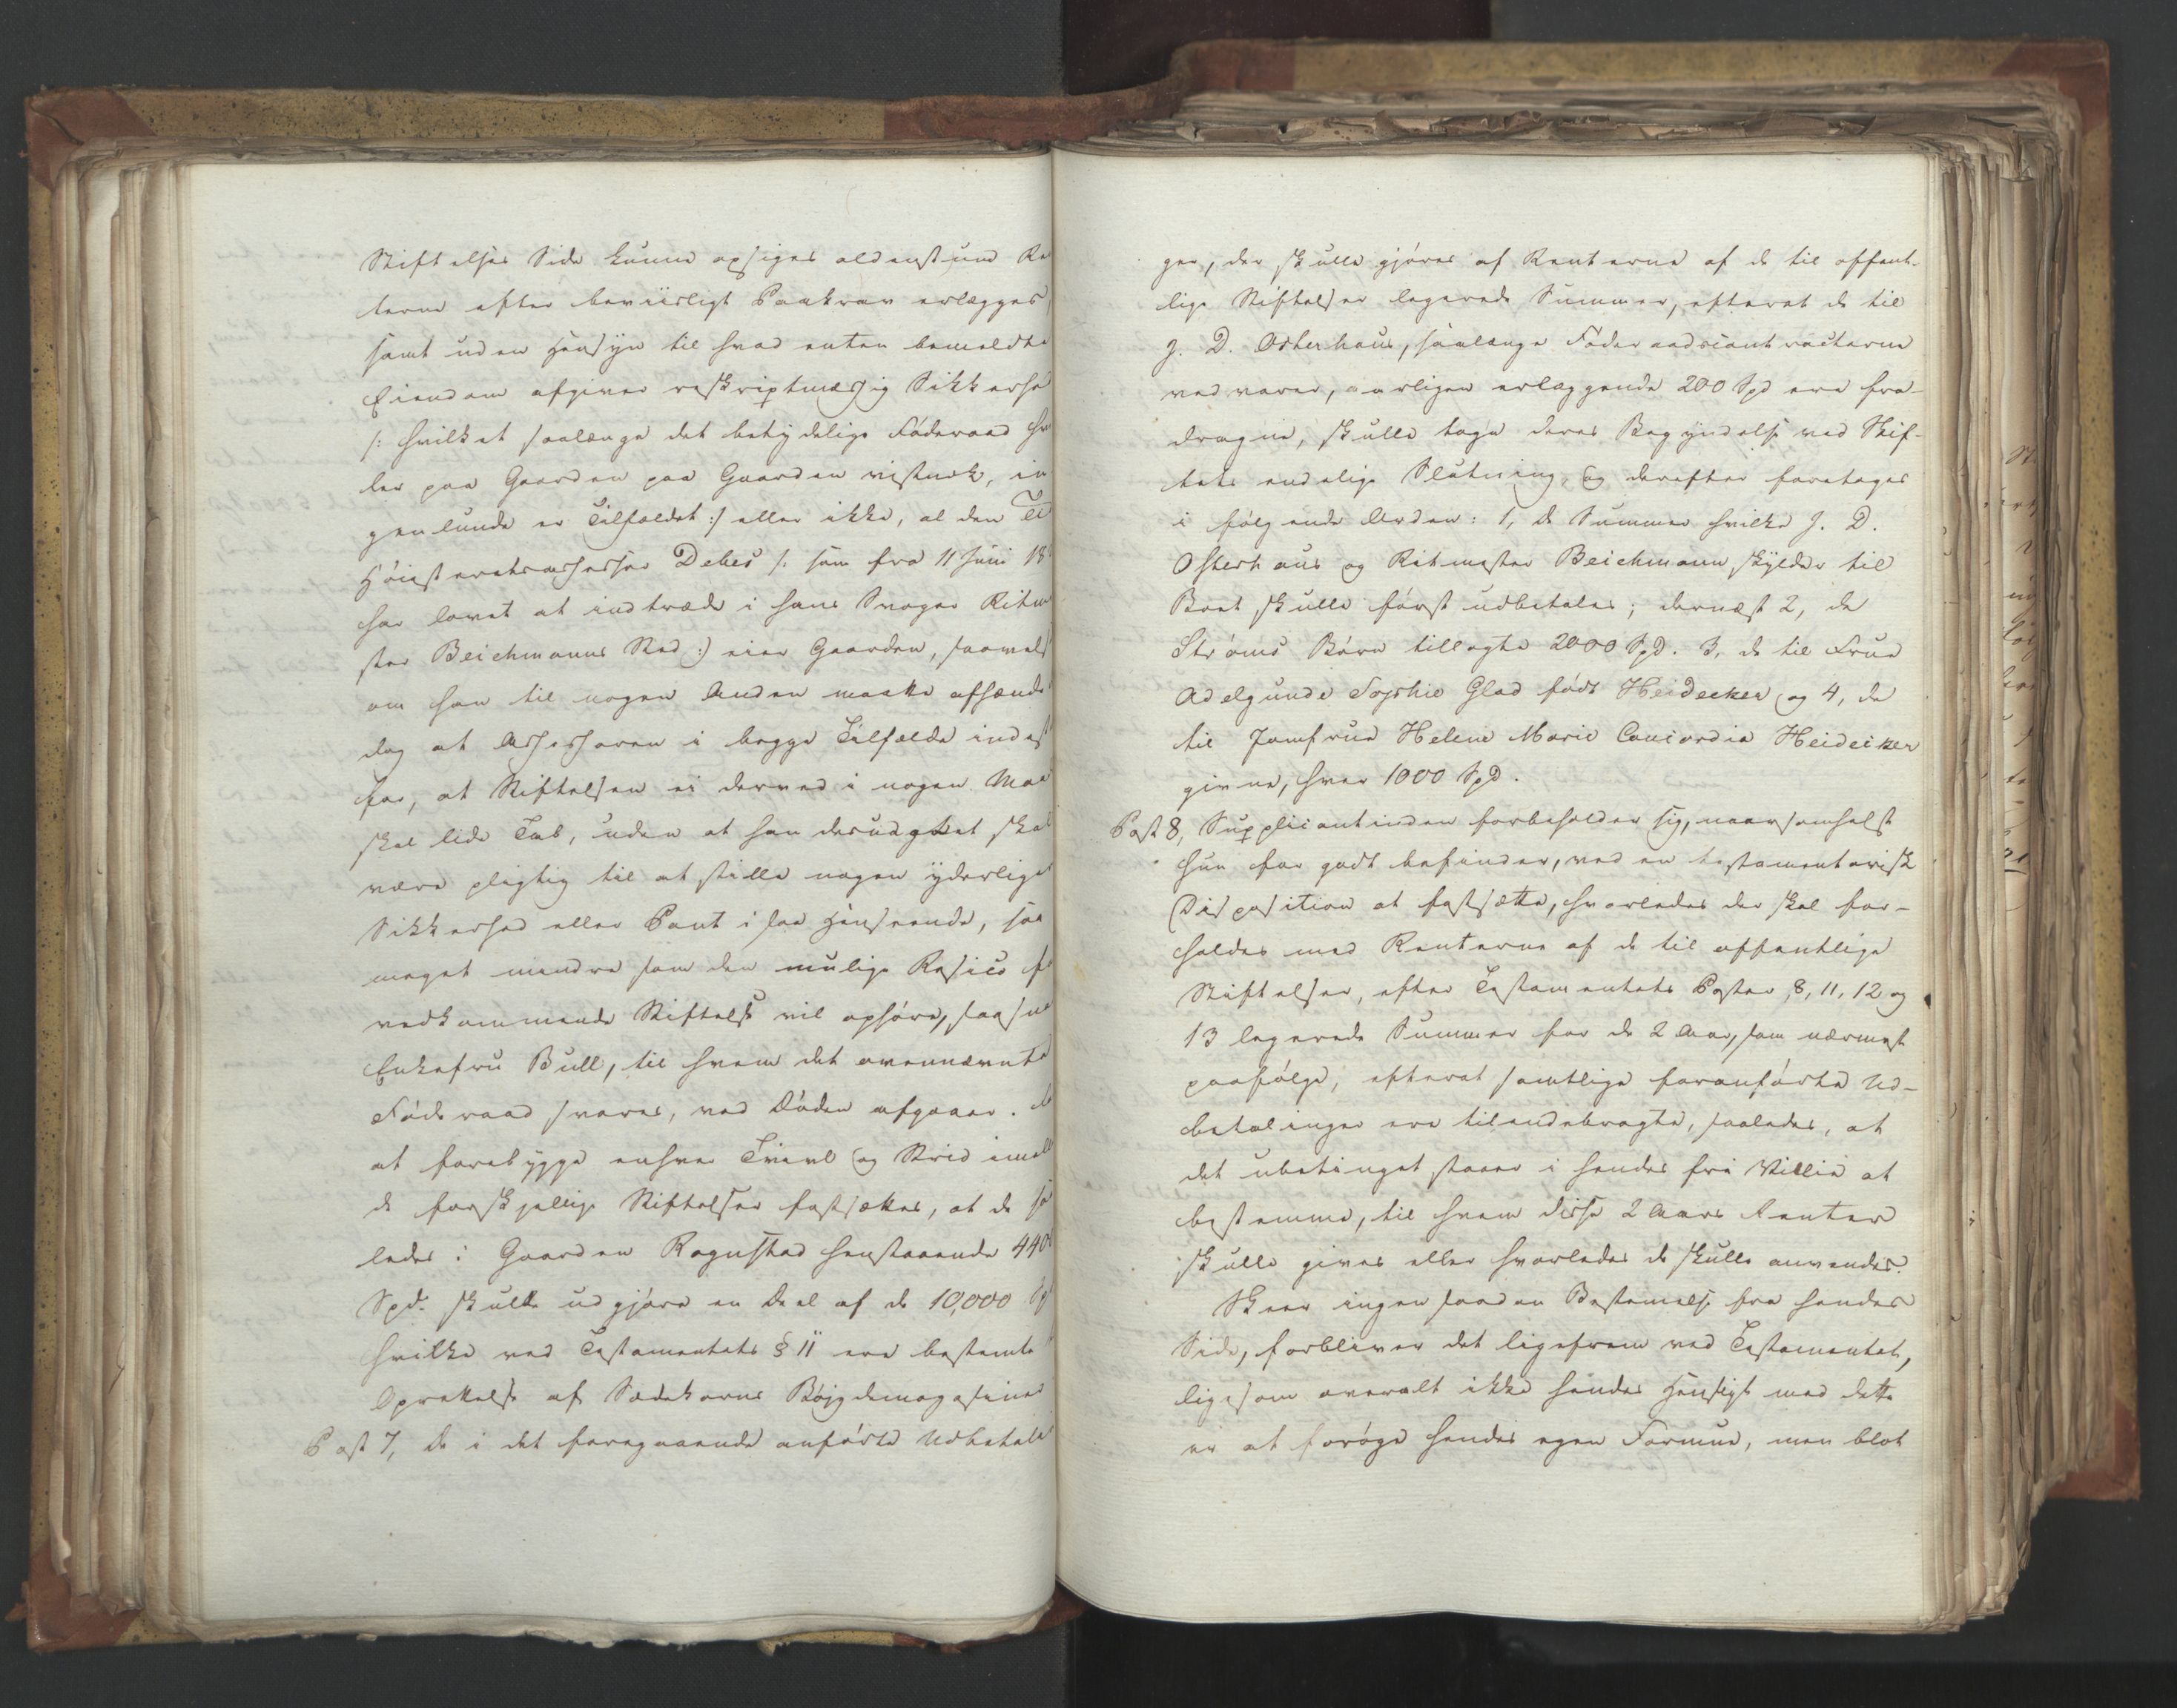 Stiftelses Side kunne opsiges aldenstund Re
terne efter beviisligt Paakrav erlægges,
samt uden Hensyn til hvad enten bemeldte
Eiendom afgiver reskriptmæssig Sikkerhe
/: hvilket saalænge det betydelige Föderaad he
ler paa Gaarden paa Gaarden vistnok, in
genlunde er Tilfældet :/ eller ikke, al den Ti
Höiesteretsassessor Debes /: som fra 11 Juni 18
har lovet at indtræde i hans Svoger Ritm
ster Beichmanns Sted :/ eier Gaarden, saavels
om han til nogen Anden maatte afhænde
dog at Assessoren i begge Tilfælde indest
for, at Stiftelsen ei derved i nogen Maa
skal lide Tab, uden at han desuagtet skal
være pligtig til at stille nogen yderliger
Sikkerhed eller Pant i saa Henseende, saa
meget mindre som den mulige Resico fo
vedkommende Stiftelse vil ophöre, saasna
Enkefru Bull, til hvem det ovennævnte
Föderaad svares, ved Döden afgaaer.
at forebygge enhver Tvivl og Strid imell
de forskjellige Stiftelser fastsættes, at de saa
ledes i Gaarden Rognstad henstaaende 440
Spd. skulle udgjöre en Deel af de 10,000 Sp
hvilke ved Testamentets § 11 ere bestemte
Oprettelse af Sædekorns Böjgdemagasiner
Post 7, De i det foregaaende anförte Udbetalin
ger, der skulle gjöres af Renterne af de til offent-
lige Stiftelser legerede Summer, efterat de til
J. D. Osterhaus, saalænge Föderaadscontracterne
vedvarer, aarligen erlæggende 200 Spd ere fra-
dragne, skulle tage deres Begyndelse ved Skif-
tets endelige Slutning, og derefter foretages
i fölgende Orden: 1, De Summer hvilke J. D.
Osterhaus og Ritmester Beichmann skylder til
Boet skulle först udbetales; dernæst 2, de
Ströms Börn tillagte 2000 Spd. 3, de til Frue
Adelgunde Sophie Glad födt Heidecker og 4, de
til Jomfrue Helene Marie Concordia Heidecker
givne, hver 1000 Spd.
Post 8, Supplicantinden forbeholder sig, naarsomhelst
hun for godt befinder, ved en testamentarisk
Disposition at fastsætte, hvorledes der skal for-
holdes med Renterne af de til offentlige
Stiftelser, efter Testamentets Poster 8, 11, 12 og
13 legerede Summer for de 2 Aar, som nærmest
paafölge, efterat samtlige foranförte Ud-
betalinger ere tilendebragte, saaledes, at
det ubetinget staaer i hendes frie Villie at
bestemme, til hvem disse 2 Aars Renter
skulle gives eller hvorledes de skulle anvendes.
Skeer ingen saadan Bestemelse fra hendes
Side, forbliver det ligefrem ved Testamentet,
ligesom overalt ikke hendes Hensigt med dette
er at foröge hendes egen Formue, men blot